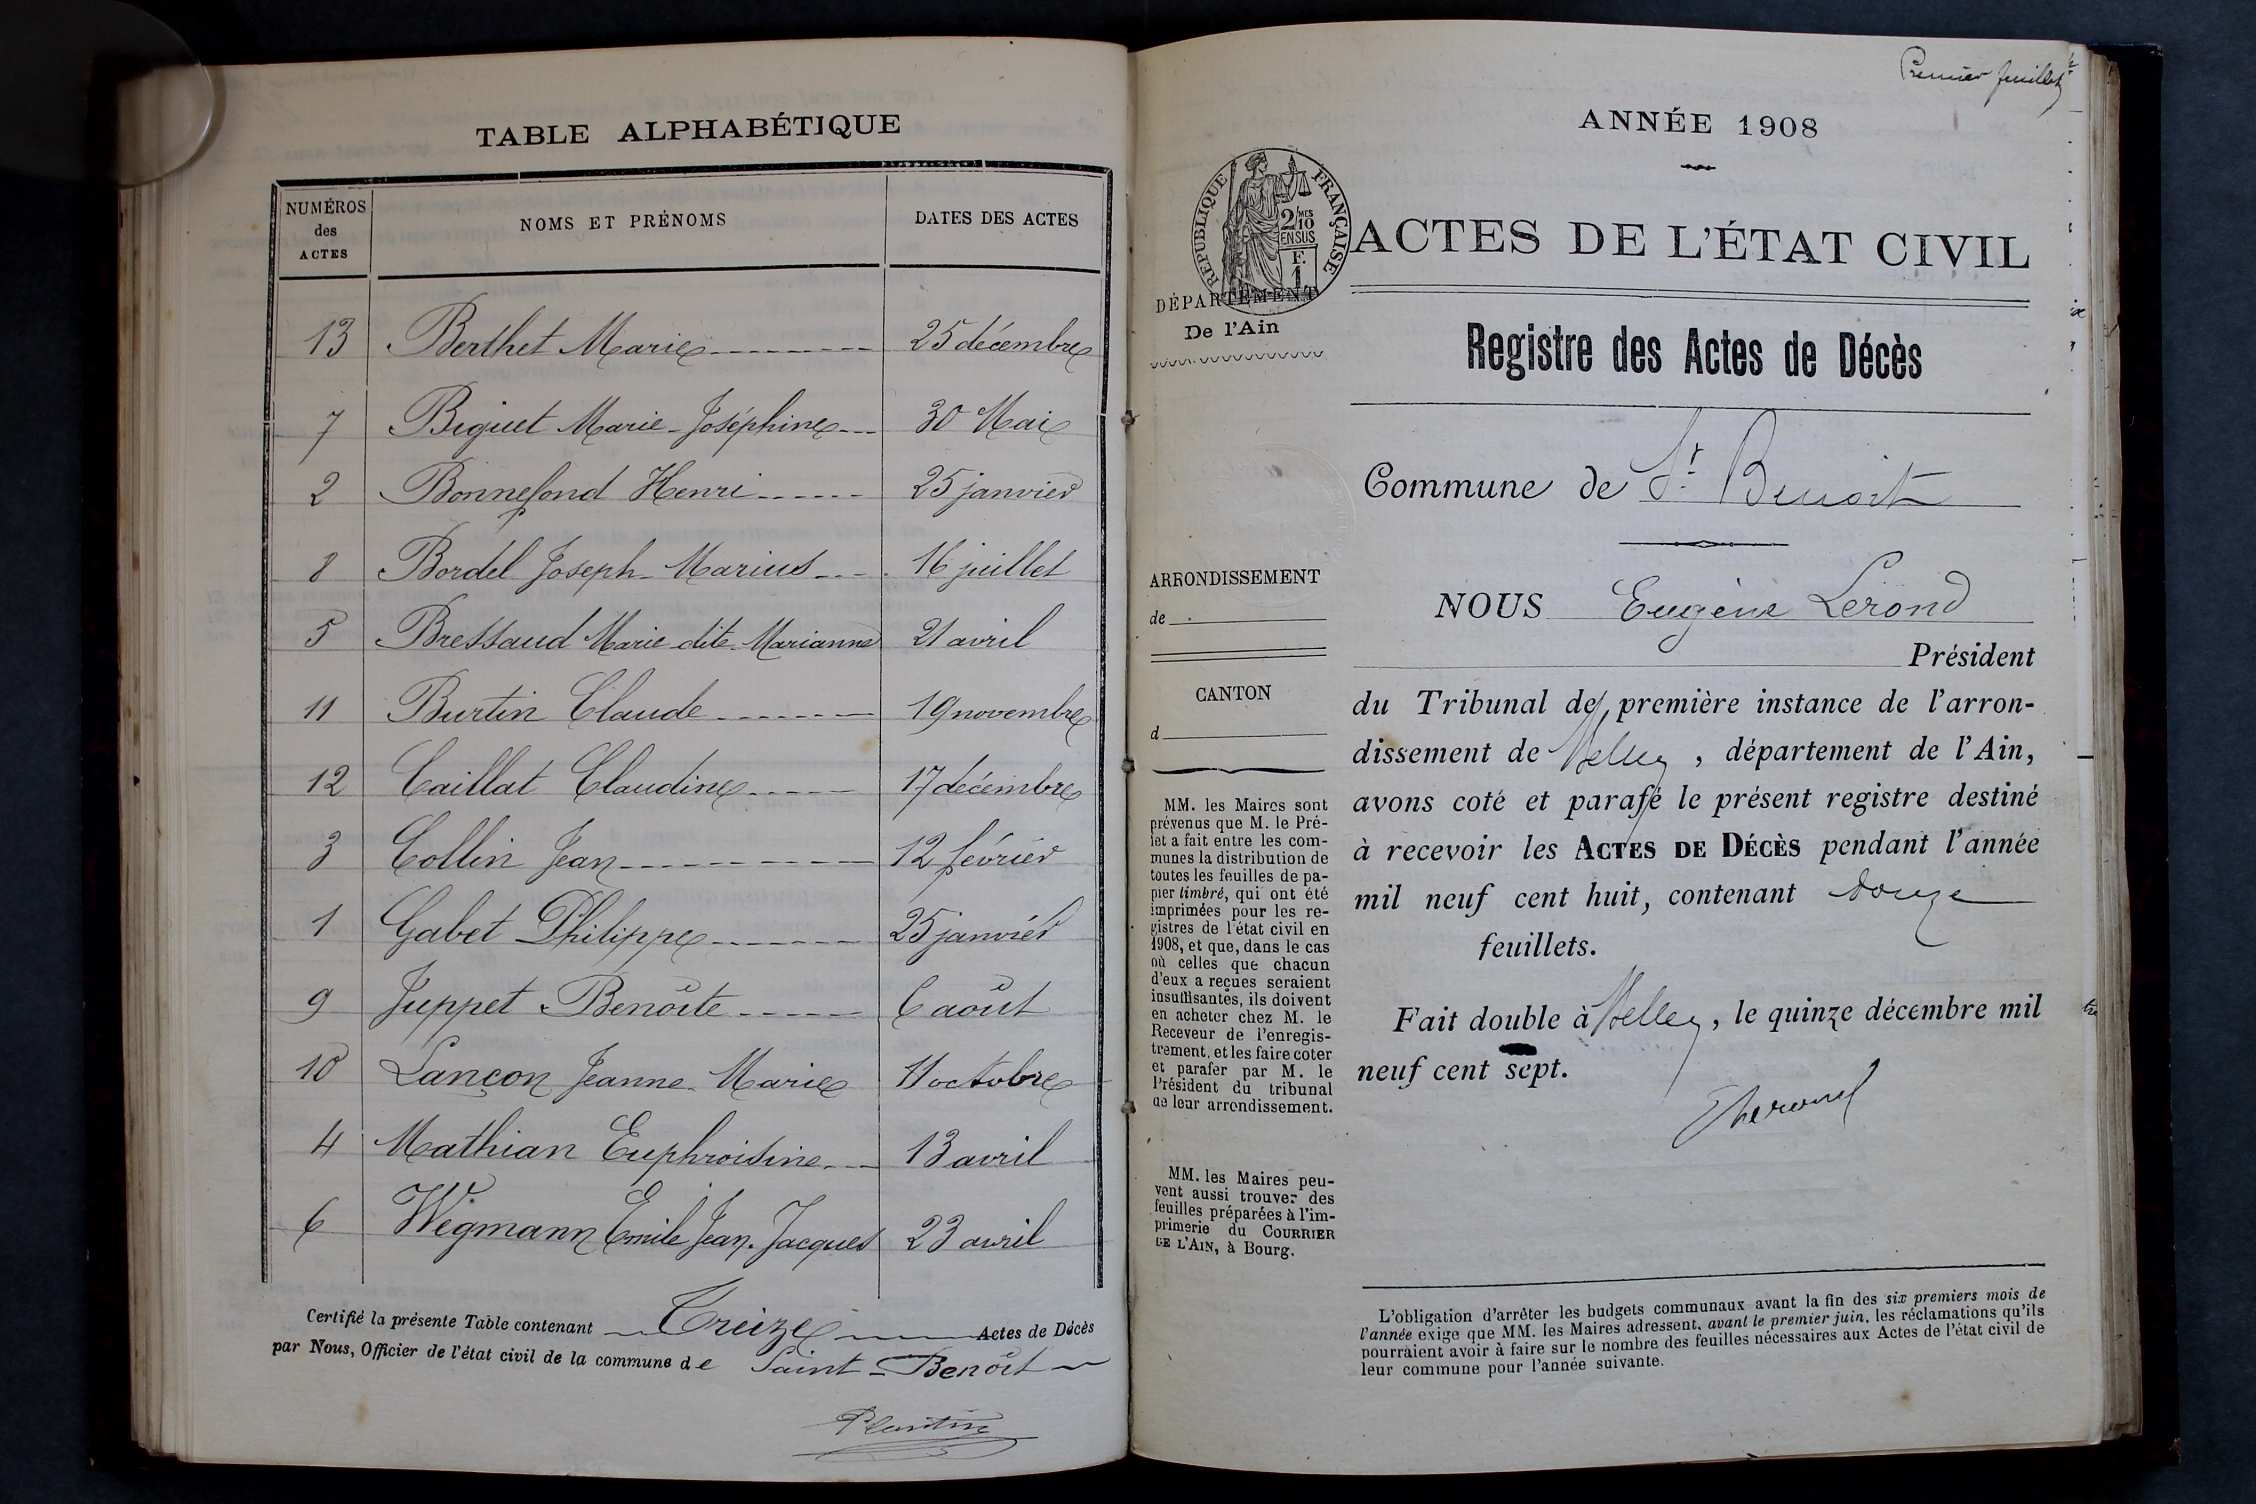 TABLE ALPHABÉTIQUE
NUMÉROS des ACTES
NOMS ET PRÉNOMS
DATES DES ACTES
13 Berthet Marie 25 décembre
7 Biguet Marie-Joséphine 30 Mai
2 Bonnefond Henri 25 janvier
8 Bordel Joseph-Marius 16 juillet
5 Bressaud Marie dite Marianne 21 avril
11 Burtin Claude 19 novembre
12 Caillat Claudine 17 décembre
3 Collin Jean 12 février
1 Gabet Philippe 25 janvier
9 Juppet Benoîte 6 août
10 Lançon Jeanne-Marie 11 octobre
4 Mathian Euphroisine 13 avril
6 Wegmann Emile Jean-Jacques 23 avril
Certifié la présente Table contenant Treize Actes de Décès
par Nous, Officier de l'état civil de la commune de Saint-Benôit
Plantin
Premier feuillet
ANNÉE 1908
RÉPUBLIQUE FRANÇAISE
2/10 EN SUS
F. 1
ACTES DE L'ÉTAT CIVIL
DÉPARTEMENT
De l'Ain
Registre des Actes de Décès
Commune de St Benoit
ARRONDISSEMENT
de
CANTON
d
MM. les Maires sont
prévenus que M. le Pré-
fet a fait entre les com-
munes la distribution de
toutes les feuilles de pa-
pier timbré, qui ont été
imprimées pour les re-
gistres de l'état civil en
1908, et que, dans le cas
où celles que chacun
d'eux a reçues seraient
insuffisantes, ils doivent
en acheter chez M. le
Receveur de l'enregis-
trement, et les faire coter
et parafer par M. le
Président du tribunal
de leur arrondissement.
MM. les Maires peu-
vent aussi trouver des
feuilles préparées à l'im-
primerie du COURRIER
DE L'AIN, à Bourg.
NOUS Eugène Lerond
Président
du Tribunal de première instance de l'arron-
dissement de Belley, département de l'Ain,
avons coté et parafé le présent registre destiné
à recevoir les ACTES DE DÉCÈS pendant l'année
mil neuf cent huit, contenant douze
feuillets.
Fait double à Belley, le quinze décembre mil
neuf cent sept.
L'obligation d'arrêter les budgets communaux avant la fin des six premiers mois de
l'année exige que MM. les Maires adressent, avant le premier juin, les réclamations qu'ils
pourraient avoir à faire sur le nombre des feuilles nécessaires aux Actes de l'état civil de
leur commune pour l'année suivante.